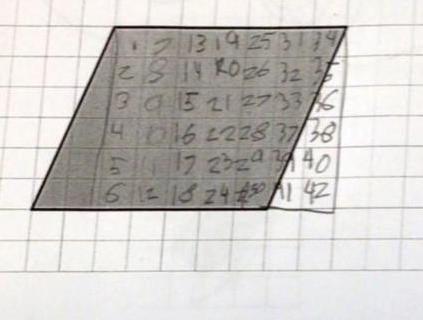 1 7 13 19 25 31 34
2 8 14 20 26 32 35
3 9 15 21 27 33 36
4 10 16 22 28 37 38
5 17 23 29 39 40
6 12 18 24 30 41 42